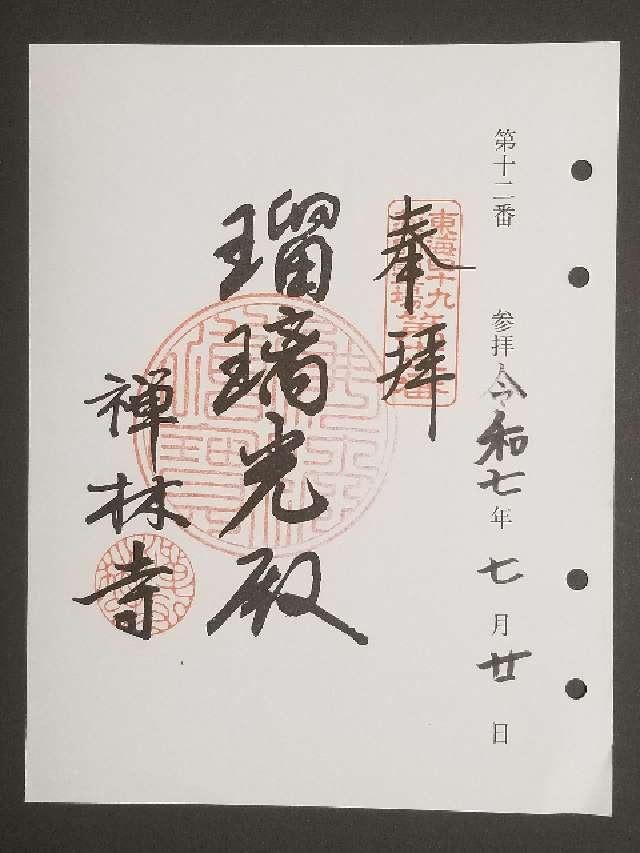 第十二番 参拝 令和七年 七月廿日
奉拝
瑠璃光殿
禅林寺
東海四十九